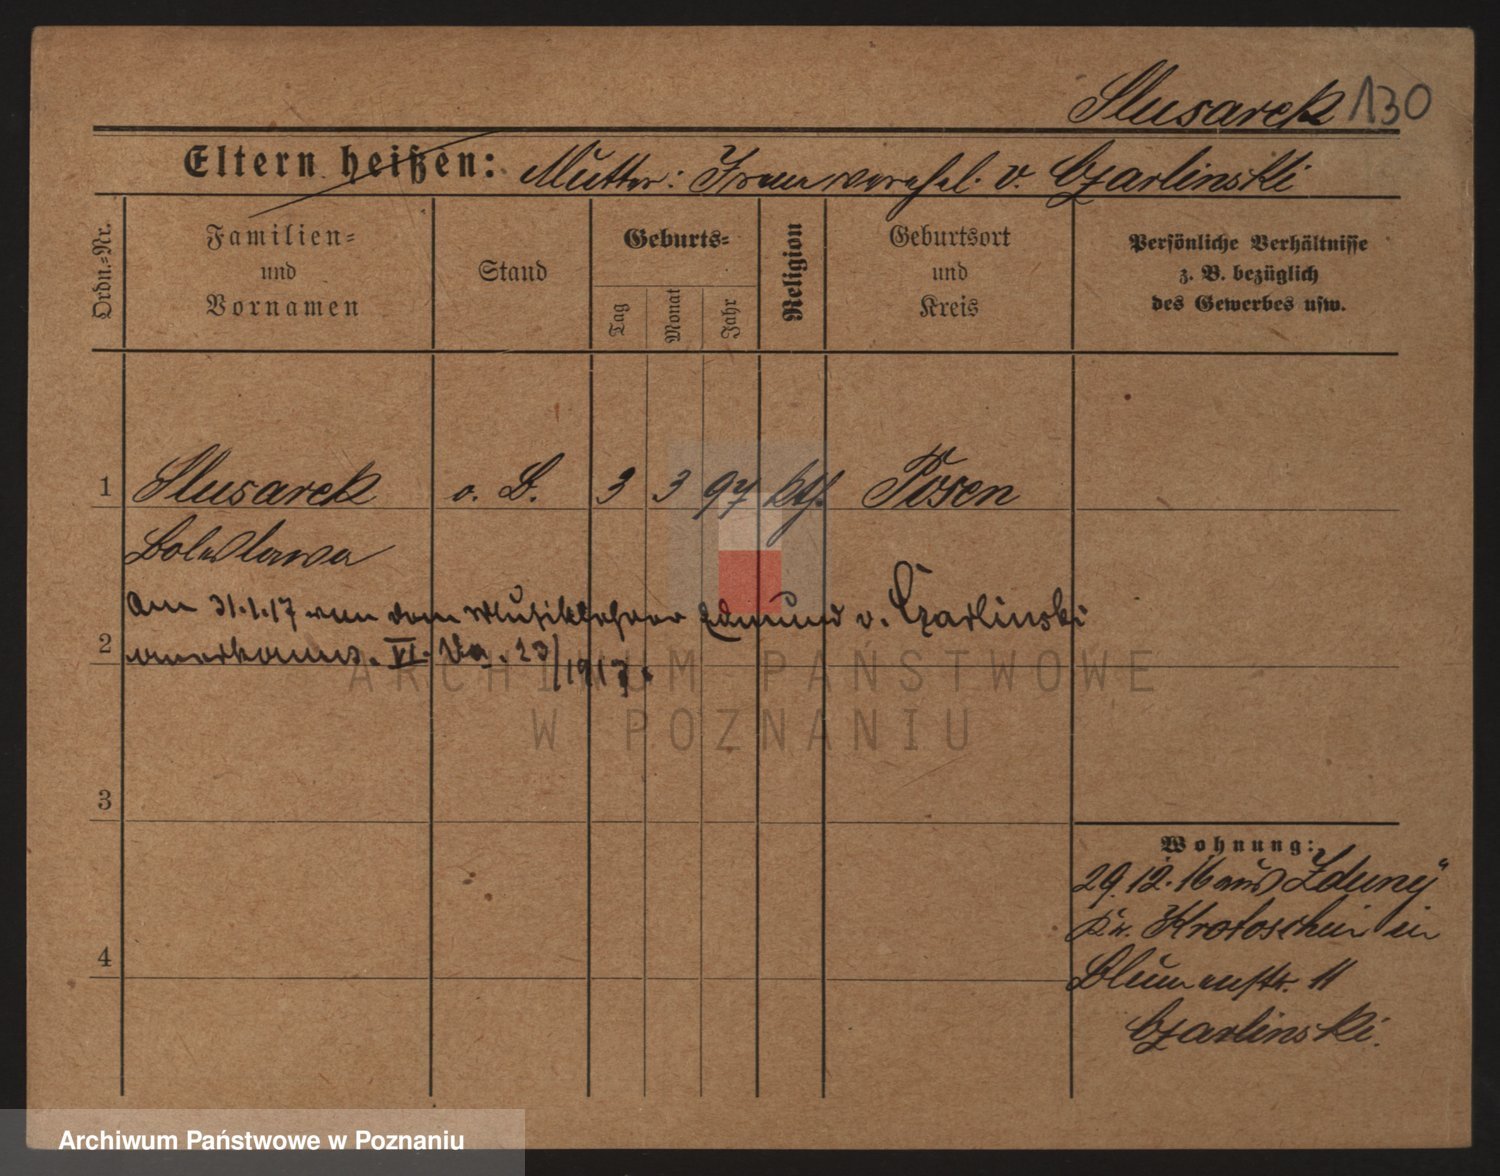 Slusarek 130
Eltern heißen: Mutter: Frau verehel. v. Czarlinski
Ordn.-Nr.
Familien-
und
Vornamen
Stand
Geburts-
Tag
Monat
Jahr
Religion
Geburtsort
und
Kreis
Persönliche Verhältnisse
z. B. bezüglich
des Gewerbes usw.
1 Slusarek o. B. 3 3 97 kth. Posen
Boleslawa
Am 31.1.17 von dem Musiklehrer Edmund v. Czarlinski
2 anerkannt. VI. Va. 23/1917.
3
4
Wohnung:
29.12.16 aus Zduny
Kr. Krotoschin in
Blumenstr. 11
Czarlinski.
ARCHIWUM PAŃSTWOWE
W POZNANIU
Archiwum Państwowe w Poznaniu